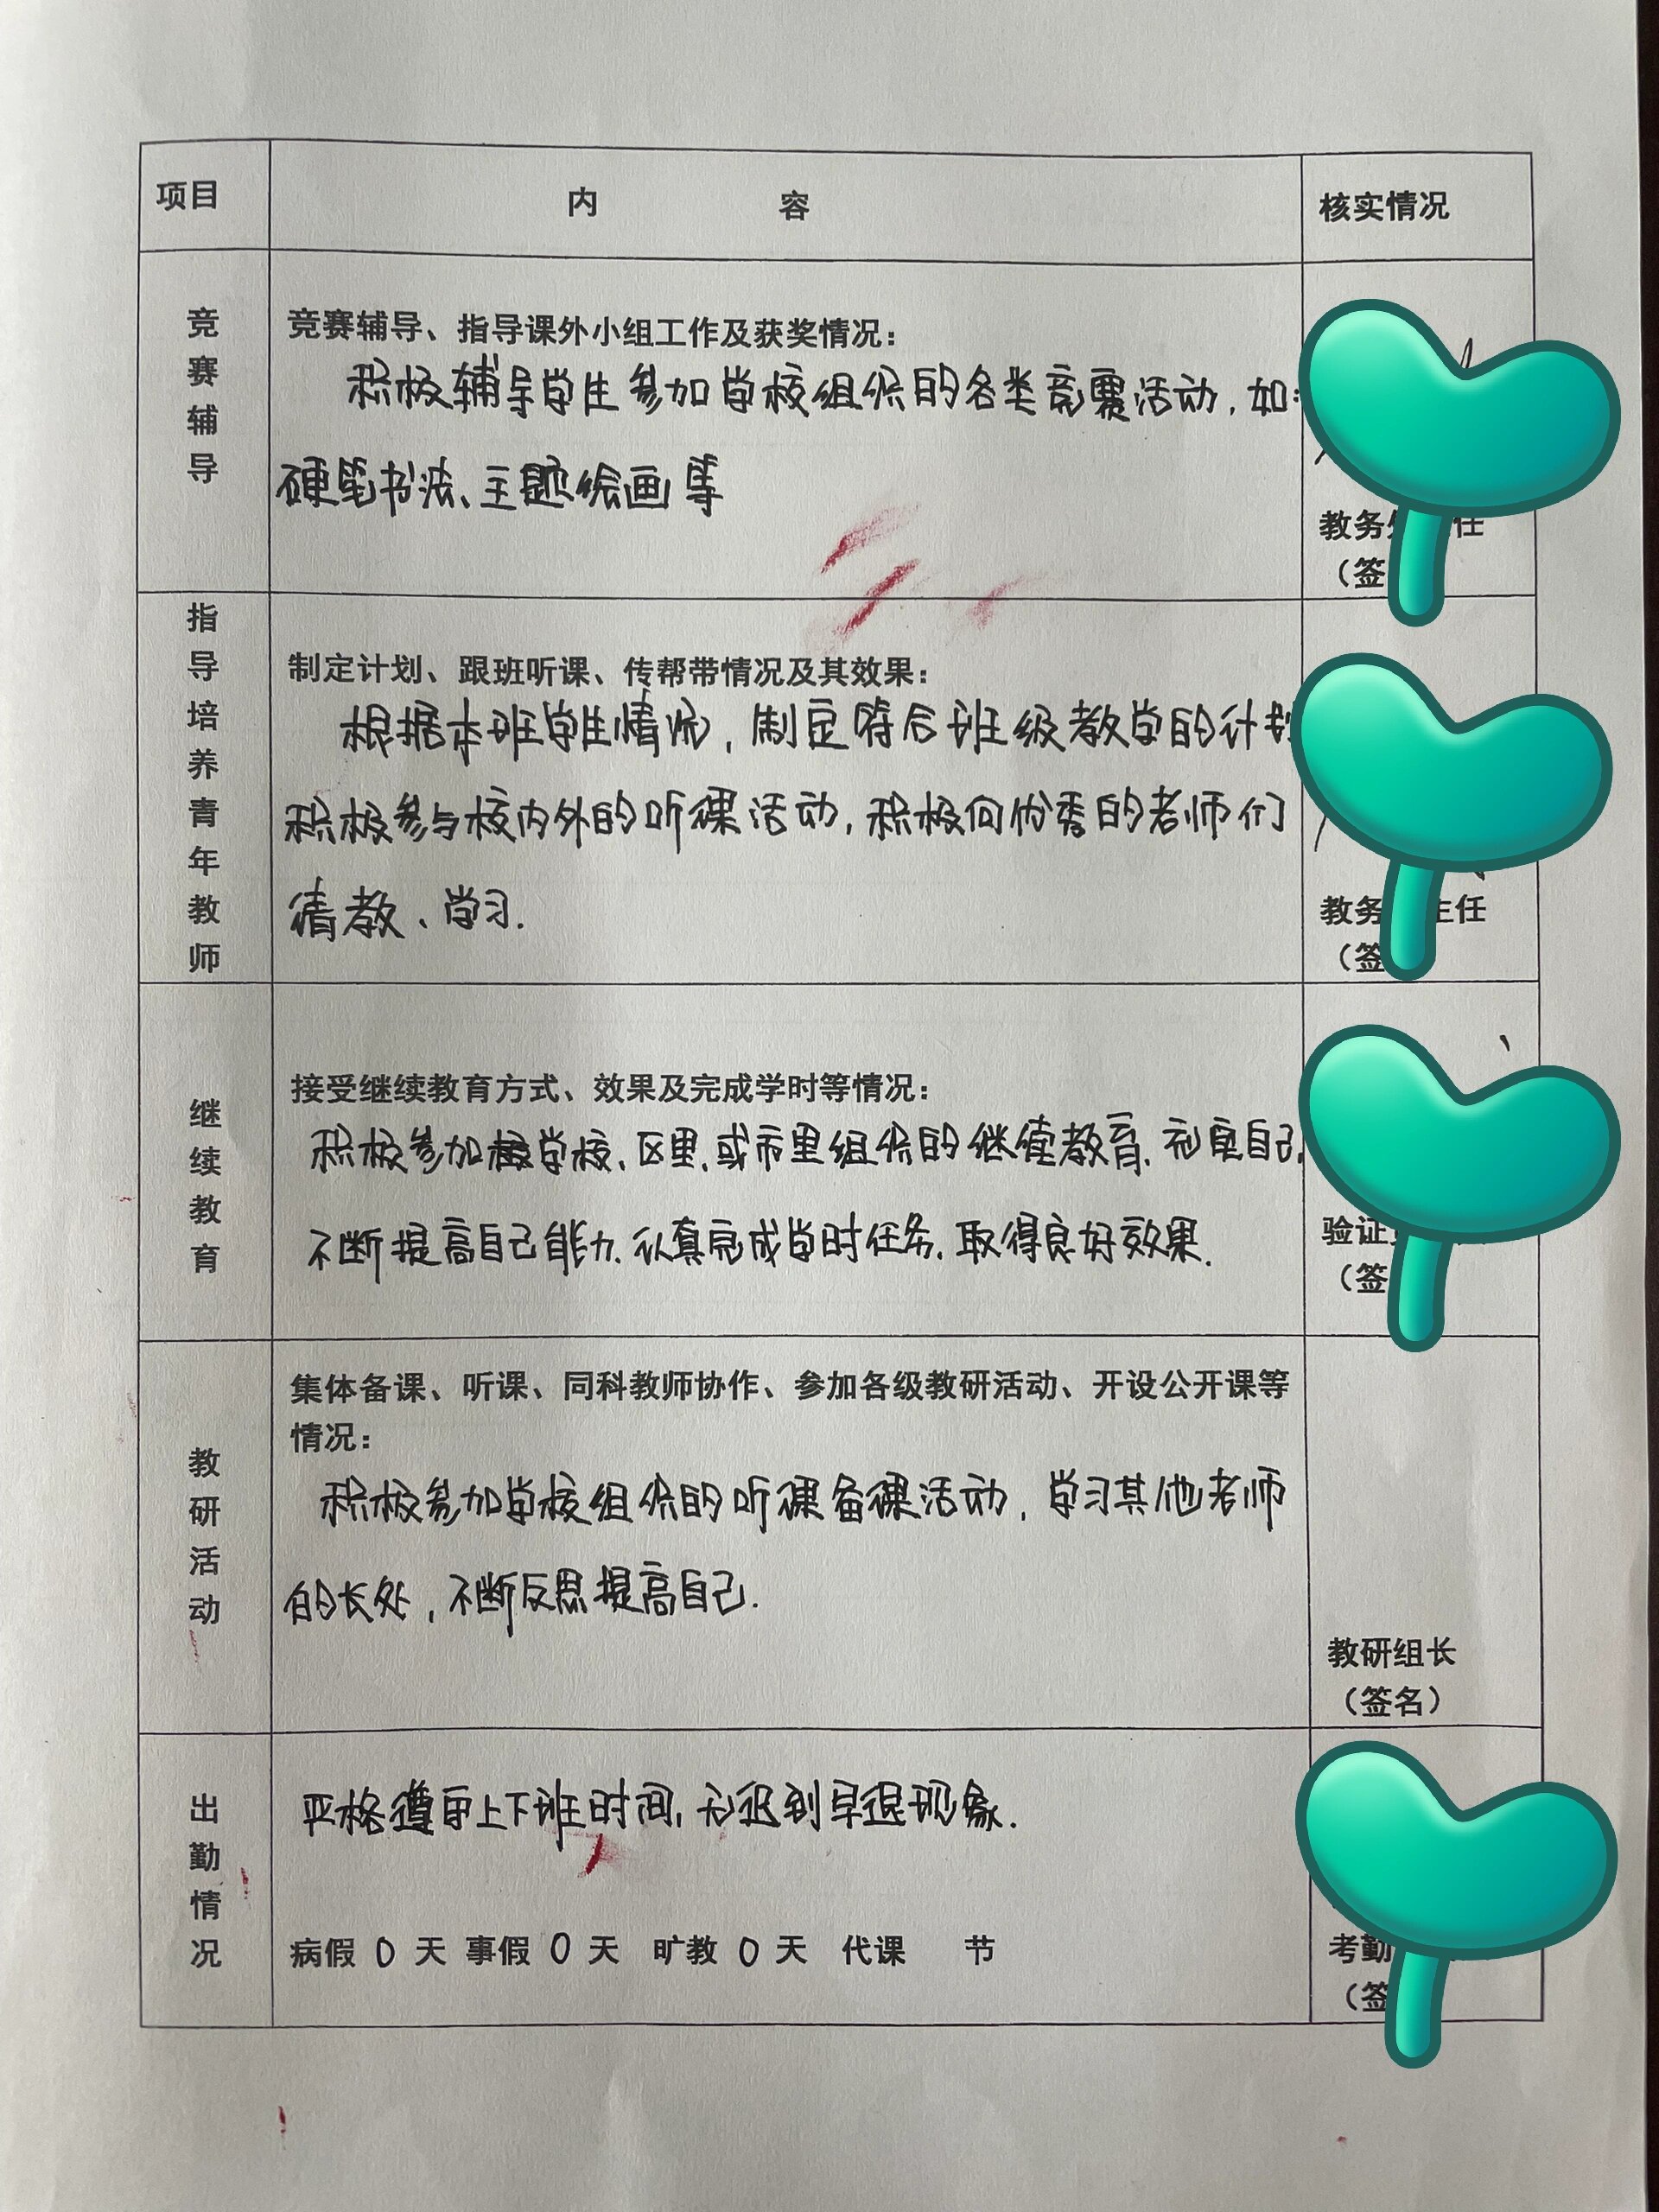 项目
内 容
核实情况
竞赛辅导
竞赛辅导、指导课外小组工作及获奖情况：
积极辅导学生参加学校组织的各类竞赛活动，如：
硬笔书法、主题绘画等
教务 任
（签
指导培养青年教师
制定计划、跟班听课、传帮带情况及其效果：
根据本班学生情况，制定符合班级教学的计划
积极参与校内外的听课活动，积极向优秀的老师们
请教、学习.
教务 主任
（签
继续教育
接受继续教育方式、效果及完成学时等情况：
积极参加学校、区里、或市里组织的继续教育，充实自己，
不断提高自己能力，认真完成学时任务，取得良好效果.
验证
（签
教研活动
集体备课、听课、同科教师协作、参加各级教研活动、开设公开课等
情况：
积极参加学校组织的听课备课活动，学习其他老师
的长处，不断反思提高自己.
教研组长
（签名）
出勤情况
严格遵守上下班时间，无迟到早退现象.
病假 0 天 事假 0 天 旷教 0 天 代课 节
考勤
（签